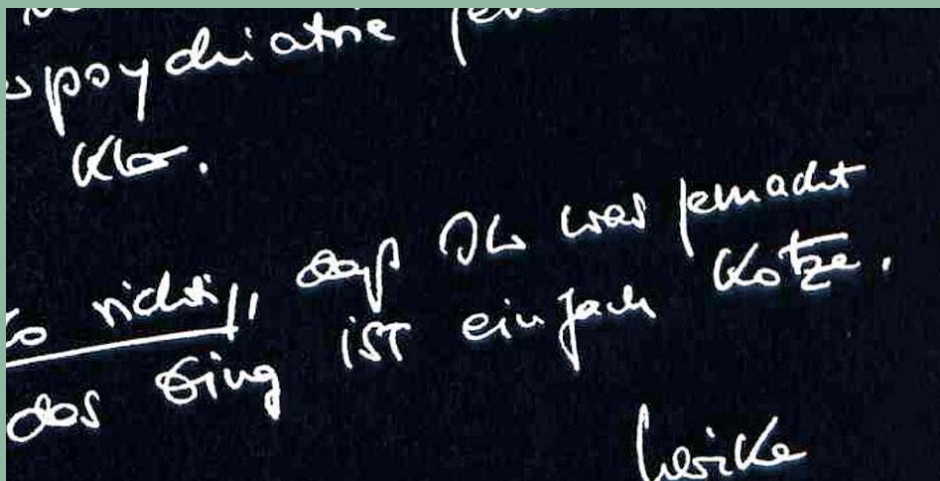 psychiatrie
Klo.
so richtig, daß Ihr was gemacht
das Ding IST einfach Kotze.
Ulrike